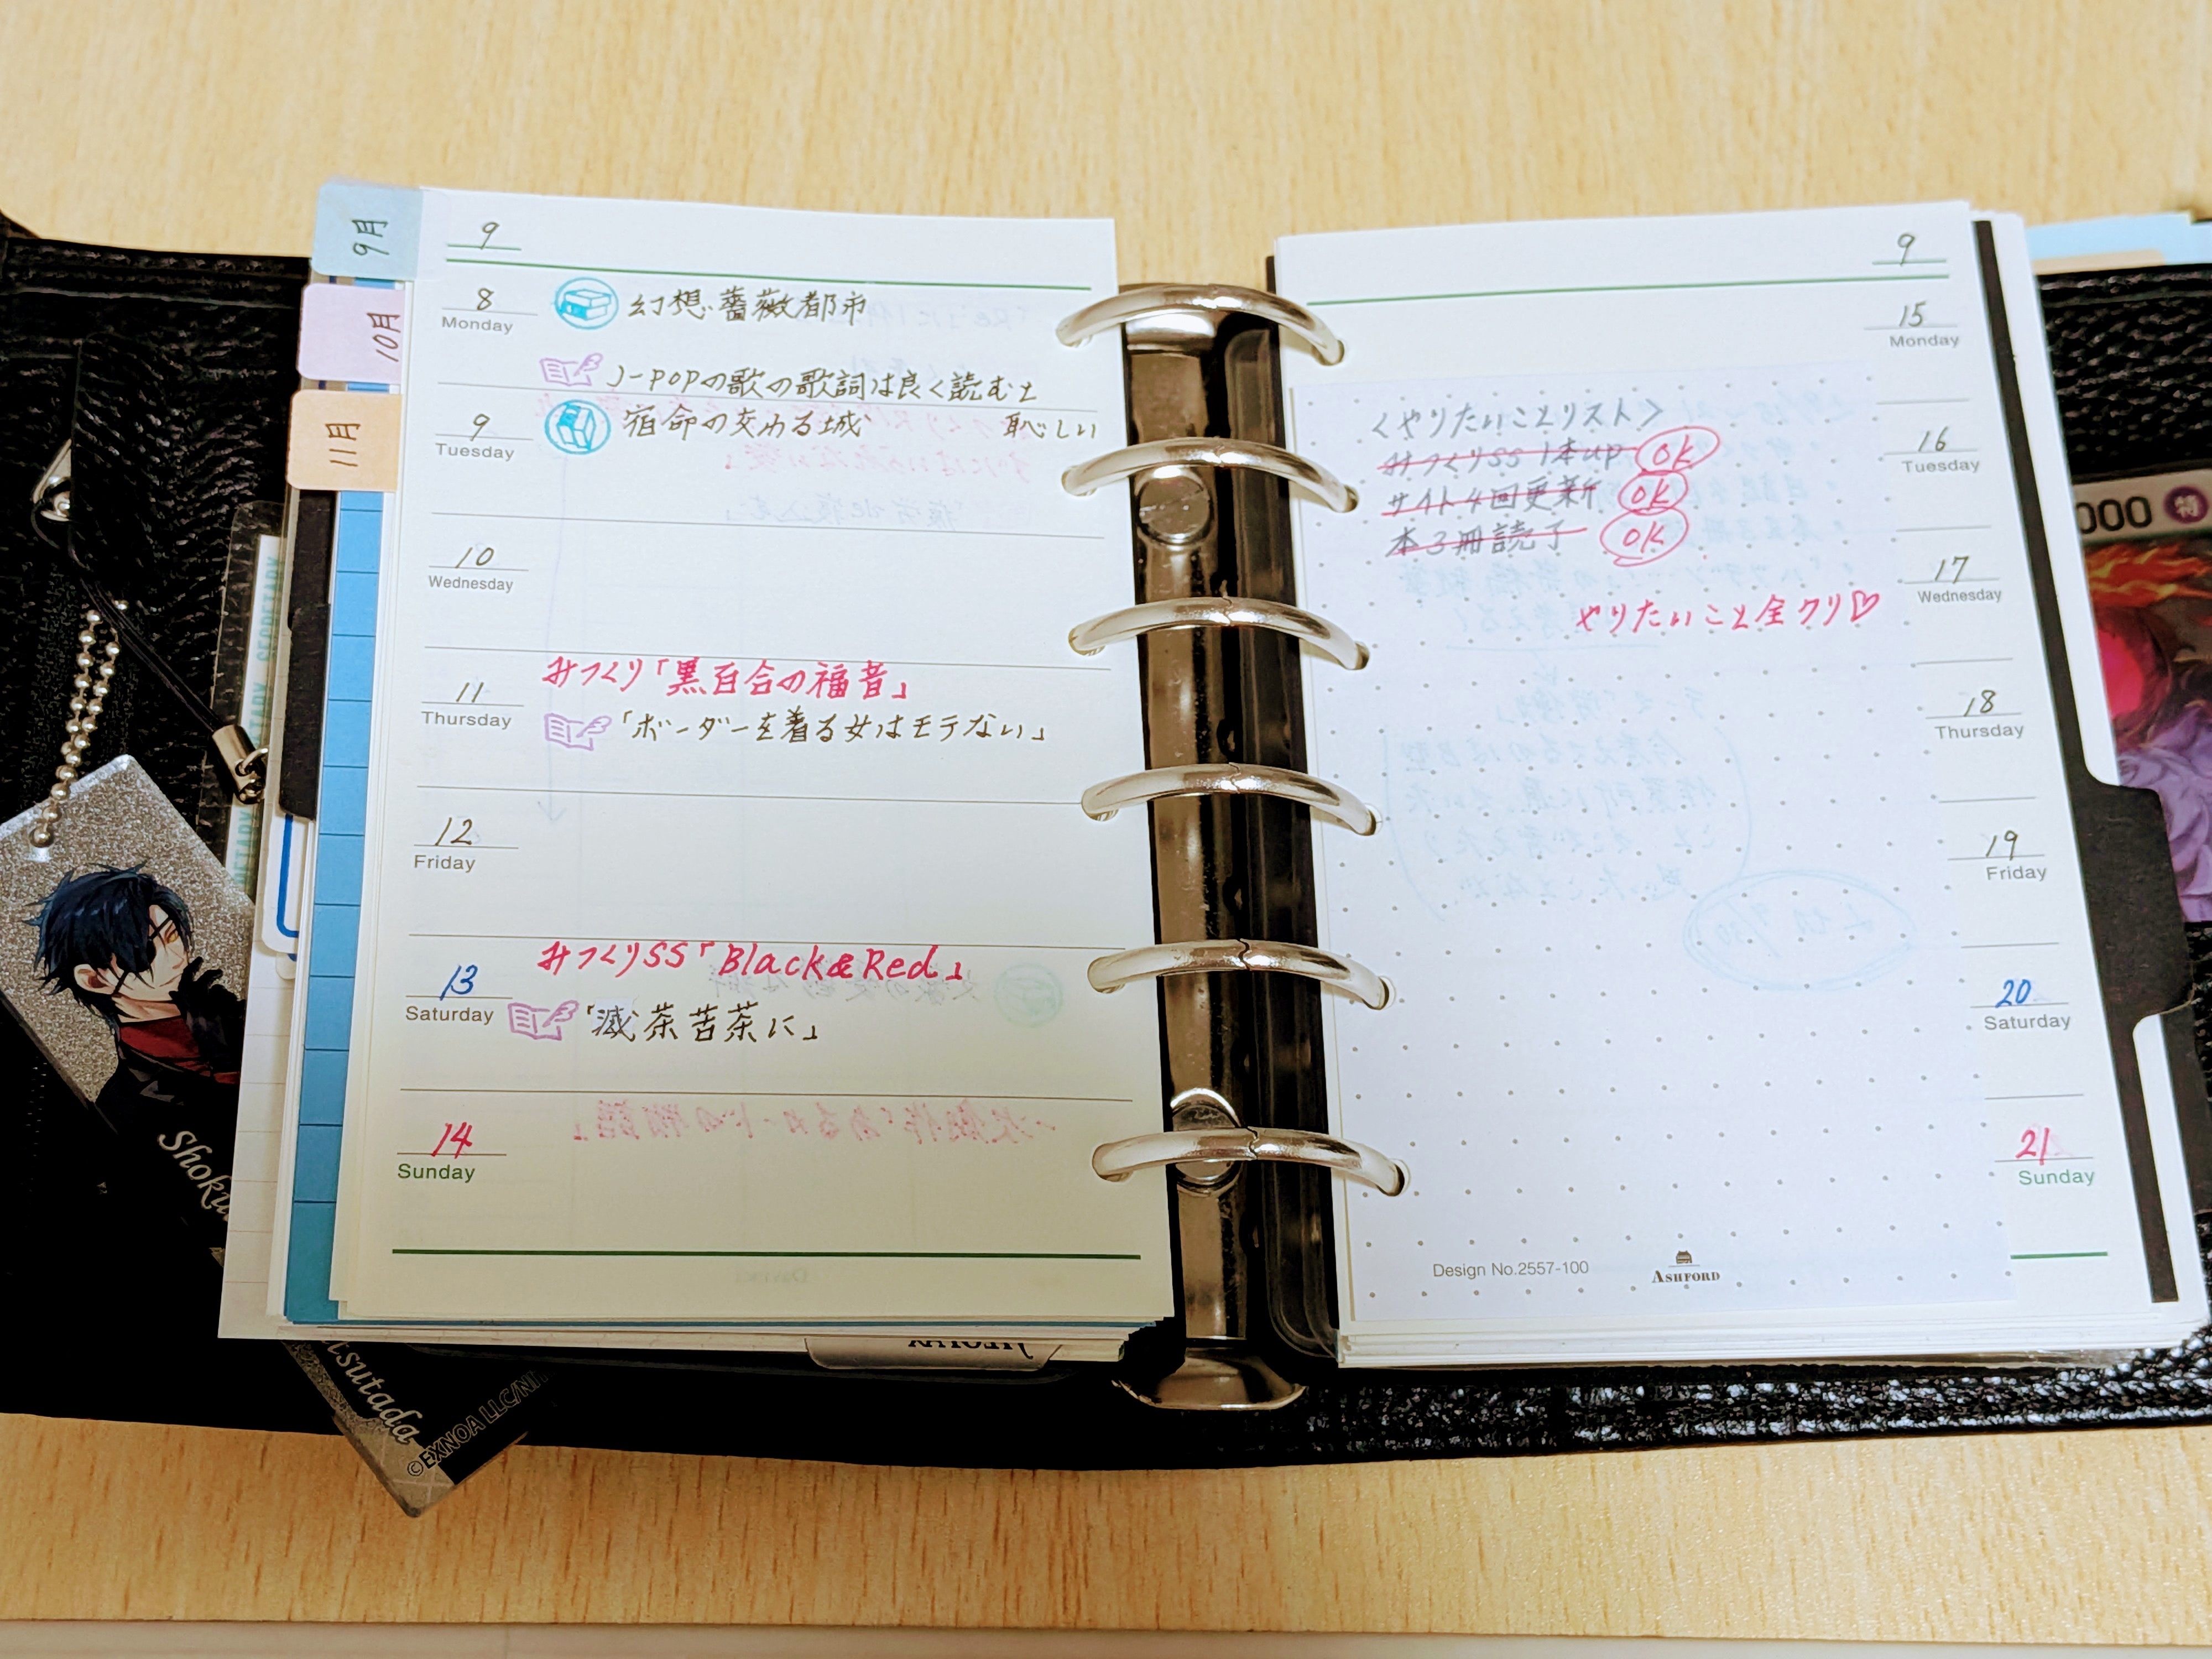 9月
10月
11月
9
8
Monday
幻想薔薇都市
J-POPの歌の歌詞は良く読むと
恥しい
9
Tuesday
宿命の交わる城
10
Wednesday
みつくり「黒百合の福音」
11
Thursday
「ボーダーを着る女はモテない」
12
Friday
みつくりSS「Black&Red」
13
Saturday
「滅茶苦茶に」
14
Sunday
9
15
Monday
<やりたいことリスト>
みつくりSS 1本up OK
サイト4回更新 OK
本3冊読了 OK
やりたいこと全クリ♡
16
Tuesday
17
Wednesday
18
Thursday
19
Friday
20
Saturday
21
Sunday
Design No.2557-100
ASHFORD
Shoku
tsutada
©EXNOA LLC/NIT
000 特